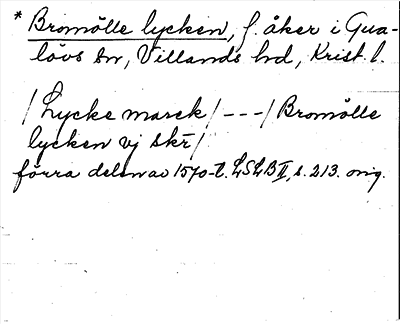 * Bromölle lycken, f. åker i Gua-
lövs sn, Villands hd, Krist. l.
/Lycke marck/ - - - / Bromölle
lycken vj skr/
förra delen av 1570-t. LSLB II, s. 213. orig.